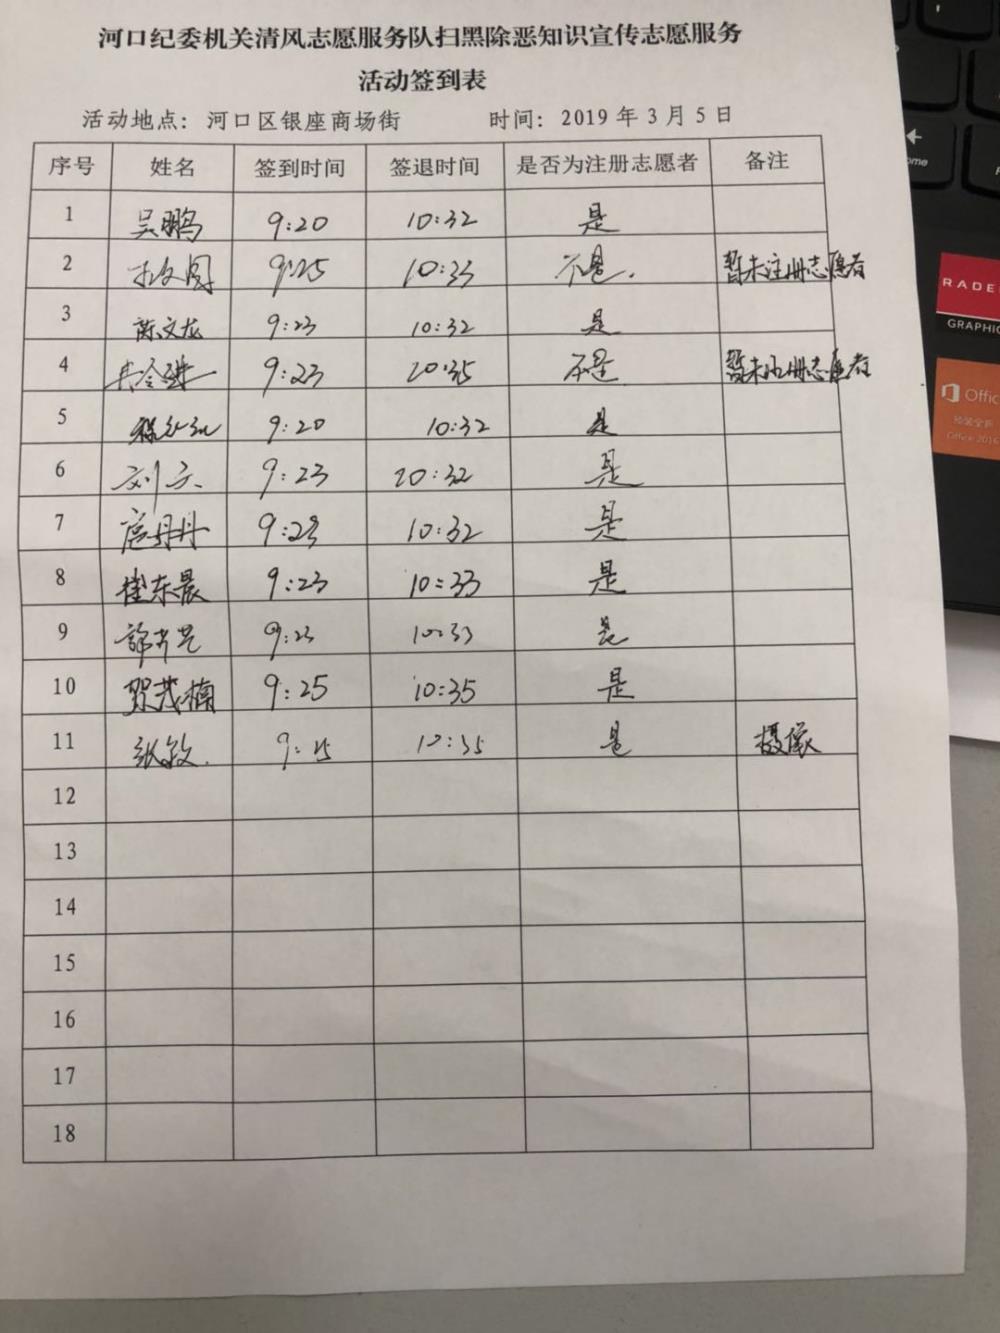 河口纪委机关清风志愿服务队扫黑除恶知识宣传志愿服务
活动签到表
活动地点：河口区银座商场街 时间：2019年3月5日
序号 姓名 签到时间 签退时间 是否为注册志愿者 备注
1 吴鹏 9:20 10:32 是
2 9:25 10:33 不是. 暂未注册志愿者
3 陈文龙 9:23 10:32 是
4 9:23 10:35 不是 暂未注册志愿者
5 9:20 10:32 是
6 刘 9:23 10:32 是
7 扈丹丹 9:23 10:32 是
8 崔东晨 9:23 10:33 是
9 9:23 10:33 是
10 贺茂楠 9:25 10:35 是
11 张敏. 9:25 10:35 是 摄像
12
13
14
15
16
17
18
home
RADE
GRAPHIC
Office
预装全新
Office 2016